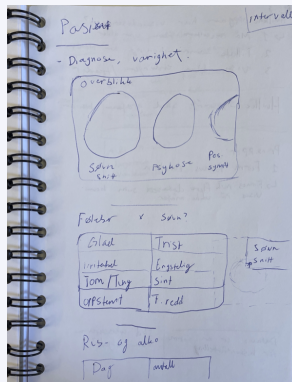 intervall
Pasient
- Diagnose, varighet.
Overblikk
Søvn snitt
Psykose
Pos sympt
Følelser v søvn?
Glad Trist
Irritabel Engstelig
Tom/Tung Sint
oppstemt
Søvn snitt
Rus- og alko
Dag